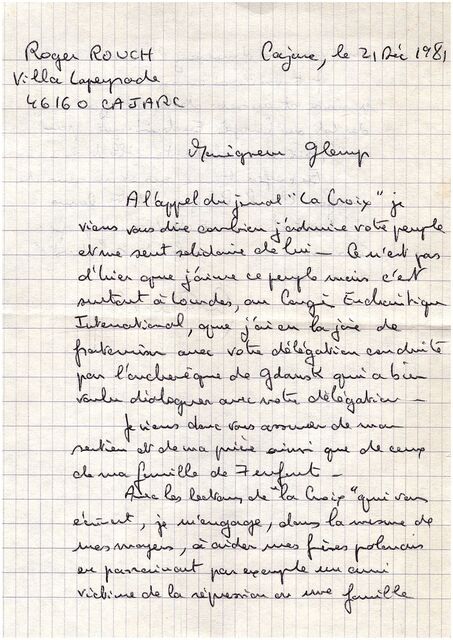 Roger ROUCH
Cajarc, le 21 Déc 1981
Villa Lapeyrade
46160 CAJARC
Monseigneur Glemp
A l'appel du journal "La Croix" je
viens vous dire combien j'admire votre peuple
et me sent solidaire de lui - Ce n'est pas
d'hier que j'aime ce peuple mais c'est
surtout à Lourdes, au Congrès Eucharistique
International, que j'ai eu la joie de
fraterniser avec votre délégation conduite
par l'archevêque de Gdansk qui a bien
voulu dialoguer avec notre délégation -
Je viens donc vous assurer de mon
soutien et de ma prière ainsi que de ceux
de ma famille de 7 enfants -
Avec les lecteurs de "la Croix" qui vous
écrivent, je m'engage, dans la mesure de
mes moyens, à aider mes frères polonais
en parrainant par exemple un ami
victime de la répression ou une famille